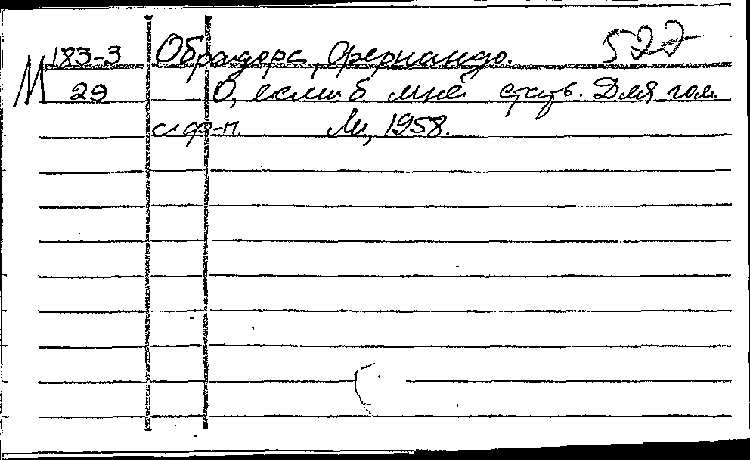 183-3 Обрадорс, Фернандо. 527
М 29 О, если б мне стать. Для гол.
с ф-п. М., 1958.